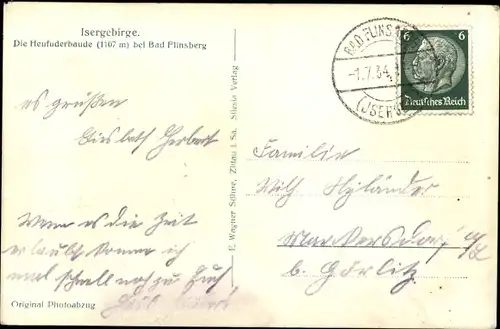 Isergebirge.
Die Heufuderbaude (1107 m) bei Bad Flinsberg
es grüßen
Liesbeth Herbert
Wenn es die Zeit
erlaubt komme ich
mal schnell noch zu Euch
Original Photoabzug
E. Wagner Söhne, Zittau i. Sa. Silesia Verlag
BAD FLINS
-1.7.34.
(ISERG
6 6
Deutsches Reich
Familie
Wilh Hyländer
Markersdorf
b. Görlitz